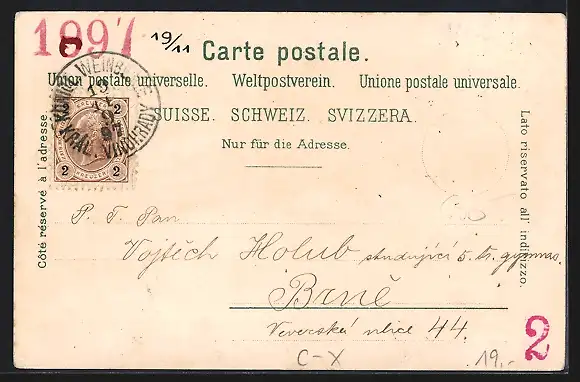 1897
19/11
Carte postale.
Union postale universelle. Weltpostverein. Unione postale universale.
SUISSE. SCHWEIZ. SVIZZERA.
Nur für die Adresse.
Côté réservé à l'adresse.
Lato riservato all' indirizzo.
KÖNIGL. WEINBERGE
KRÁL. VINOHRADY
13
97
2 2
KREUZER
2 2
P. T. Pan
Vojtěch Holub studující 5. tř. gymnas.
Brně
Veverská ulice 44.
C-X
19,-
2